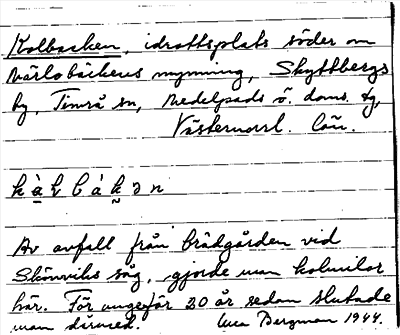 Kolbacken, idrottsplats söder om
Närlobäckens mynning, Skyttbergs
by, Timrå sn, Medelpads ö. doms. tg,
Västernorrl. län.
kàk bàkən
Av avfall från brädgården vid
Skönviks såg, gjorde man kolmilor
här. För ungefär 20 år sedan slutade
man därmed. Bergman 1944.